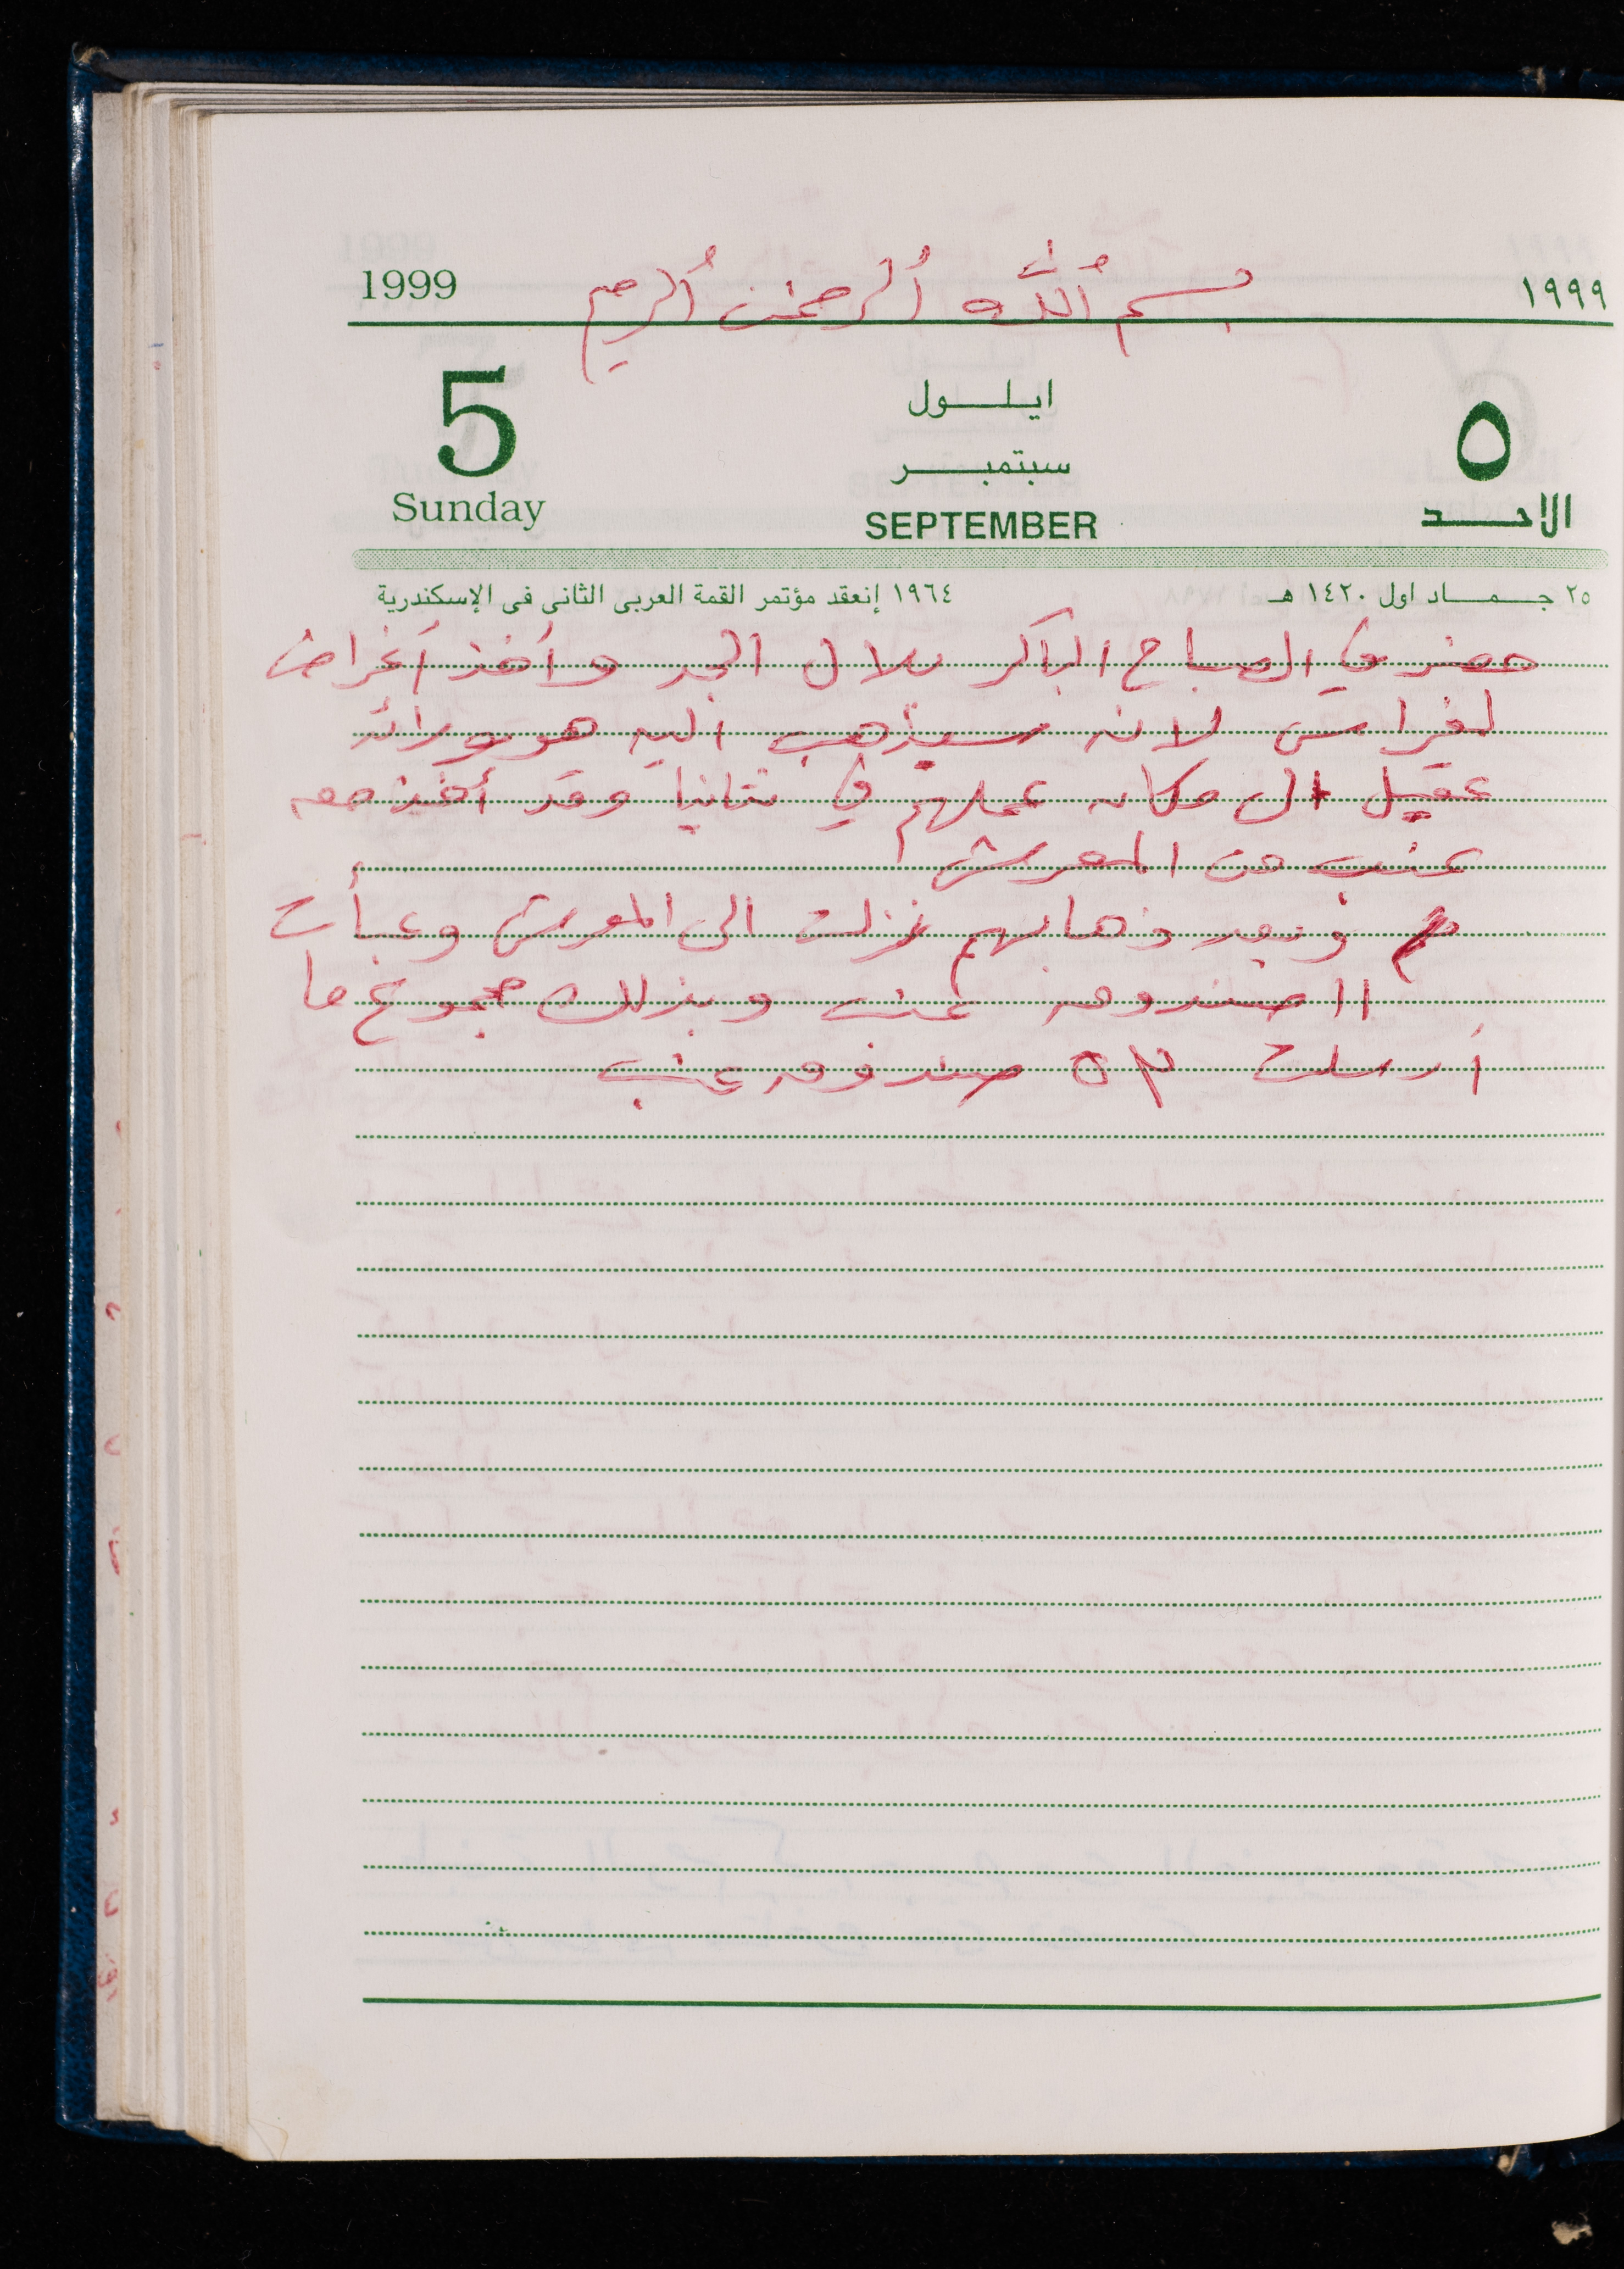 1999 بسم الله الرحمن الرحيم ١٩٩٩
5 ايلول ٥
سبتمبر
Sunday SEPTEMBER الاحد
٢٥ جماد اول ١٤٢٠ هـ ١٩٦٤ إنعقد مؤتمر القمة العربى الثانى فى الإسكندرية
حضر في الصباح الباكر بلال الجد وأخذ أغراض
لفراس لانه سيذهب اليه هو ورائد
عقيل الى مكان عملهم في نتانيا وقد أخذ معه
عنب من المعرش
وبعد ذهابهم نزلت الى المعرش وعبأت
١١ صندوق عنب وبذلك مجموع ما
أرسلت ٥٣ صندوق عنب